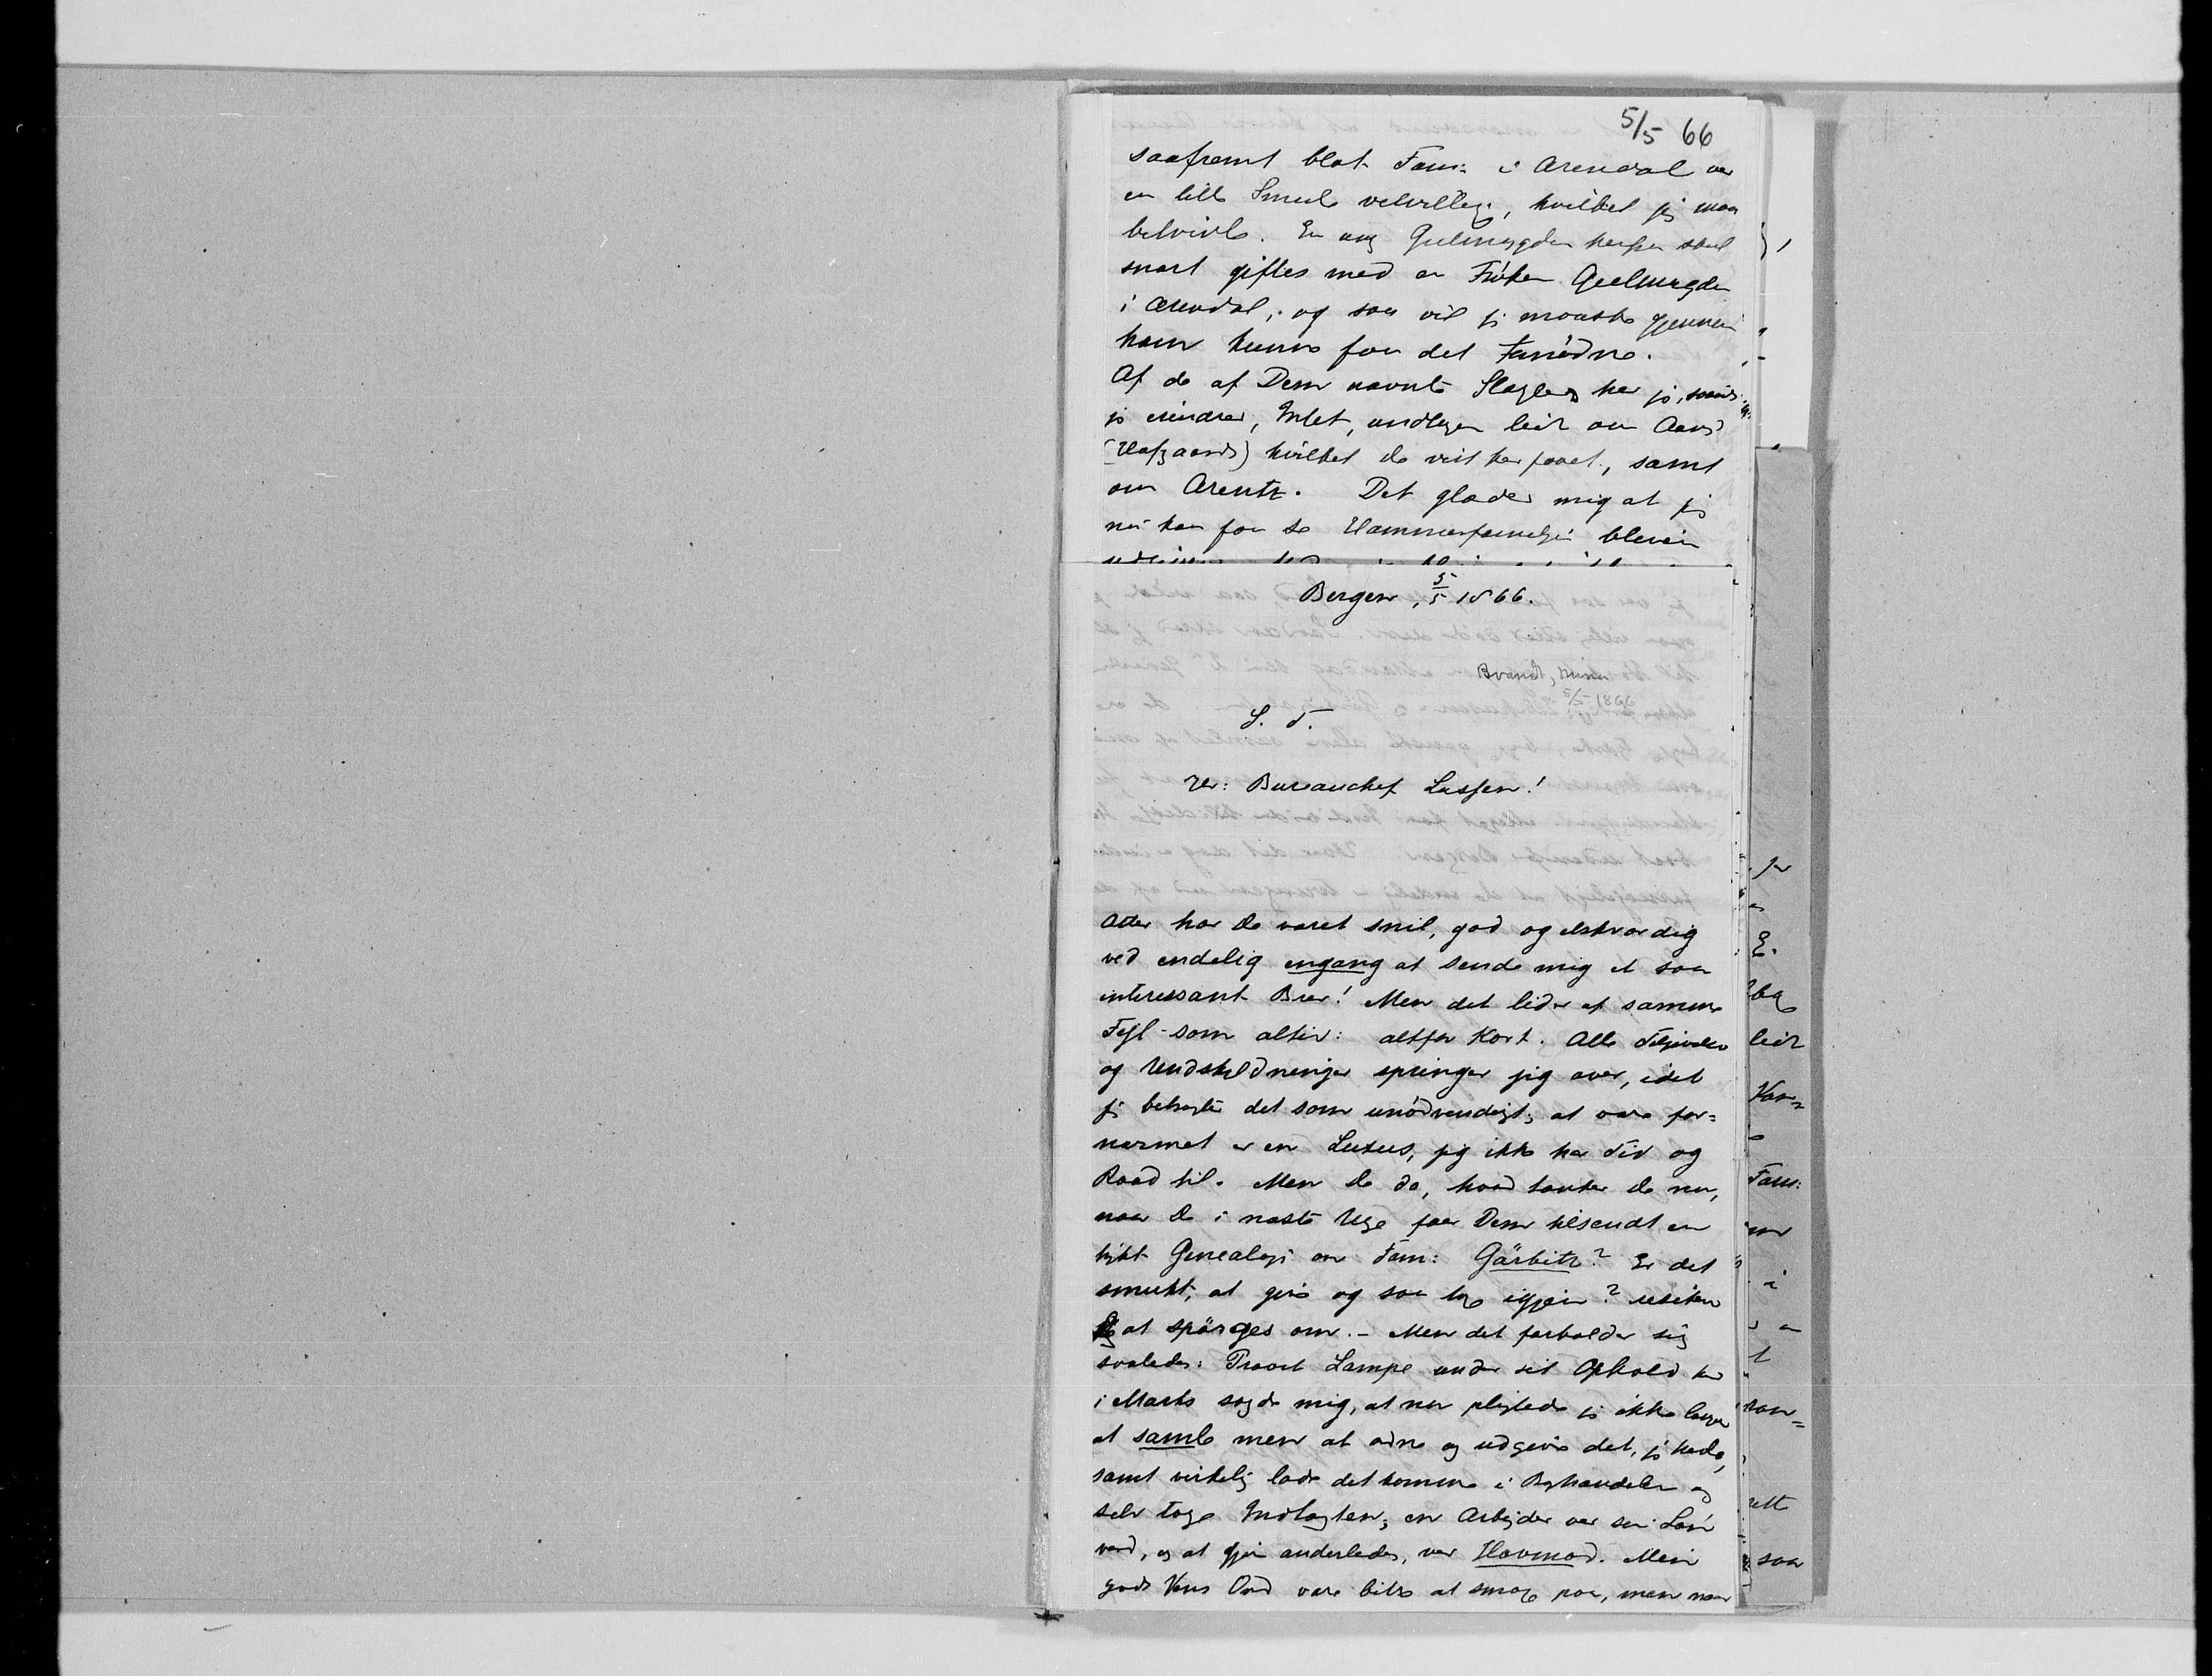 5/5 66
saafremt blot Fam: i Arendal var
en lille Smule velvillig, hvilket jeg maa
betvivle. En ung Geelmuyden herfra skal
snart giftes med en Frøken Geelmuyden
i Arendal, og saa vil jeg maaske gjennem
ham kunne faa det fornødne.
Af de af Dem nævnte Slægter har jeg, saavidt
jeg erindrer, Intet, undtagen lidt om Aars
(Hofgaards) hvilket De vist har faaet, samt
om Arentz. Det glæder mig at jeg
nu kan faa se Hammerfamilien bleven
Bergen, 5/5 1866.
Brandt, Mina
5/5 1866
S. T.
Hr: Bureauchef Lassen!
Atter har De været snil, god og elskværdig
ved endelig engang at sende mig et saa
interessant Brev! Men det lider af samme
Fejl som altid: altfor Kort. Alle
og Undskyldninger springer jeg over, idet
jeg betragter det som unødvendigt; at være for=
nærmet er en Luxus, jeg ikke har Tid og
Raad til. Men De da, hvad tænker De nu,
naar De i næste Uge faar Dem tilsendt en
trykt Genealogi om Fam: Gärbitz? Er det
smukt, at give og saa tage igjen?
at spørges om. – Men det forholder sig
saaledes: Provst Lampe under sit Ophold her
i Marts sagde mig, at nu pligtede jeg ikke længer
at samle men at ordne og udgive det, jeg havde,
samt virkelig lade det komme i Boghandelen og
selv tage Indtægten; en Arbejder var sin Løn
værd, og at gjøre anderledes, var Hovmod. Min
gode Vens Ord vare bittre at smage paa, men naar